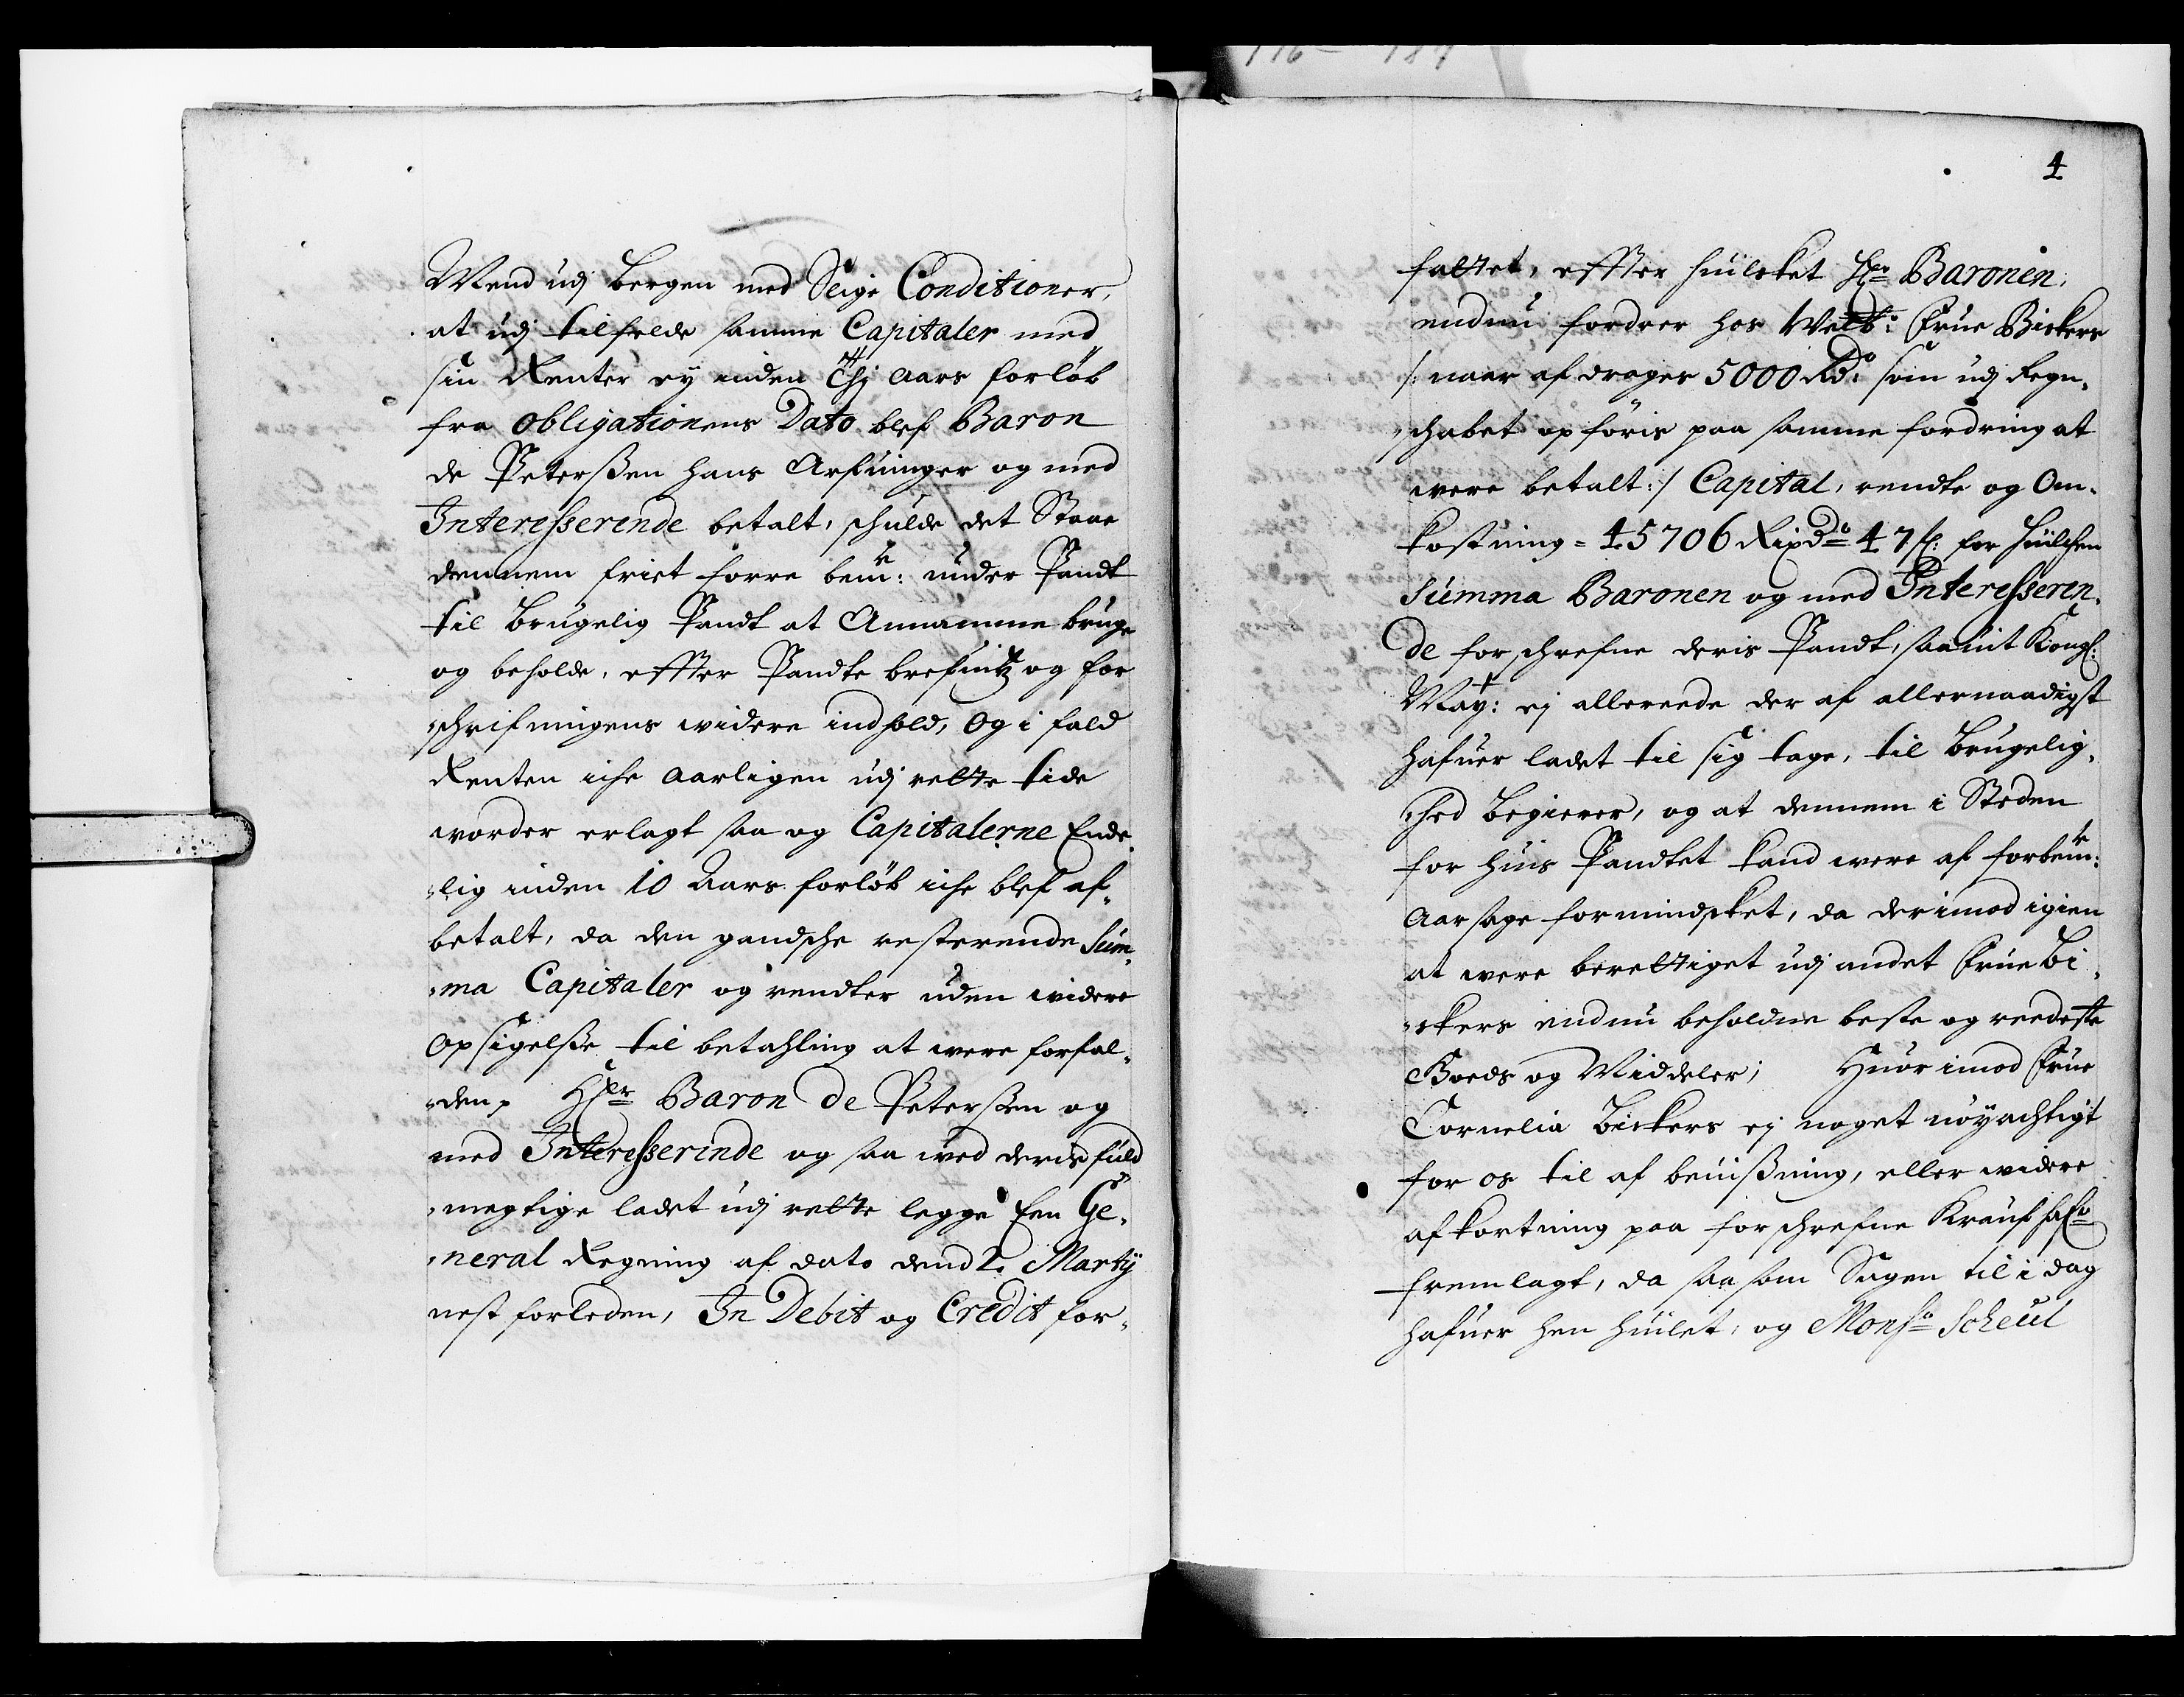 Mend udj Bergen med Slige Conditioner,
at udj tilfelde samme Capitaler med
sin Renter ey inden Thj Aars forløb
fra Obligationens Dato blef Baron
de Peterßen hans Arfuinger og med
Interesserende betalt, schulde det Staae
dennem friet forre bemte: under Pandt
til Brugelig Pandt at Annamme bruge
og beholde, effter Pandte brefuitz og for
schrifningens widere indhold, Og i fald
Renten iche Aarligen udj rette tide
worder erlagt saa og Capitalerne Ende,
,,lig inden 10 Aars forløb iche blef af,,
betalt, da den gandsche resterende Sum,,
,,ma Capitaler og rendter uden widere
Opsigelße til betahling at were forfal,,
,,den, Hr Baron de Peterßen og
med Interesserinde og saa wed deris fuld
,,megtige ladet udj rette legge Een Ge,,
,,neral Regning af dato dend 2. Marty
nest forleden, In Debit og Credit for,,
4
fattet, effter huilcket Hr Baronen,
endnu fordrer hos Welb: Frue Bickers
/: naar af drages 5000 Rdr: som udj Regn,,
,,schabet opføris paa samme fordring at
were betalt :/ Capital, rendte og Om,,
kostning = 45706 Rixdr 47 s: for huilchen
Summa Baronen og med Interesseren,,
de forschrefne deris Pandt, saauit Kongl:
May: ej allereede der af allernaadigst
hafuer ladet til sig tage, til Brugelig,,
,,hed Begierer, og at dennem i Steden
for huis Pandtet kand were af forbemte:
Aarsage formindscket, da derimod igien
at were berettiget udj andet Frue Bi,,
,,ckers endnu beholdne beste og reedeste
Boeds og Middeler; Huor imod Frue
Cornelia Bickers ej noget nøyachtigt
for os til af beuißning, eller widere
afkortning paa forschrefne Krauf hafr
fremlagt, da saasom Sagen til i dag
hafuer hen huilet, og Monsr Scheul